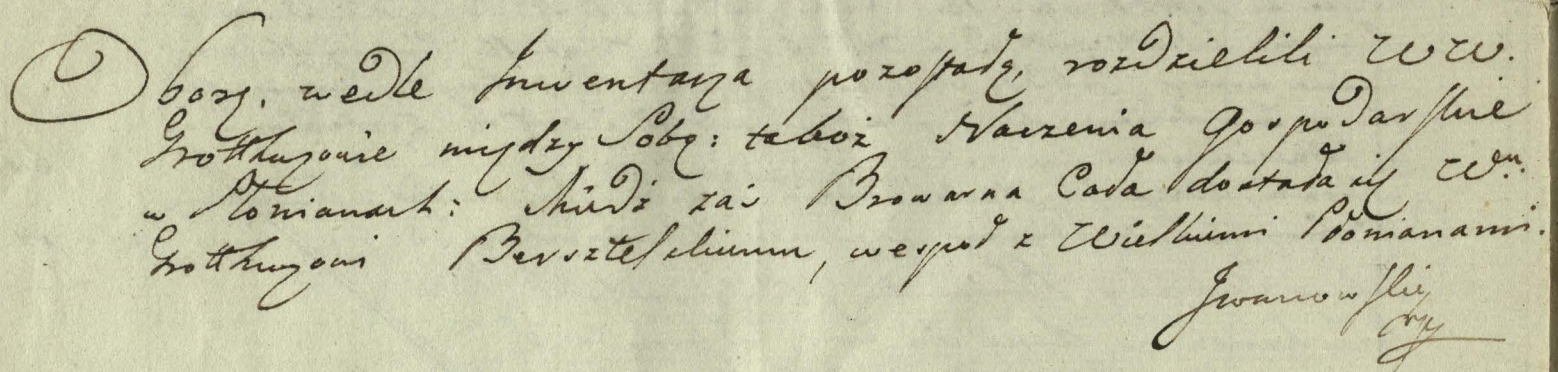 Oborę, wedle Inwentarza pozostałą, rozdzielili WW.
Grotthuzowie między Sobą: takoż Naczenia Gospodarskie
w Słonianach: Miedź zaś Browarna Cała dostała się Wmu.
Grotthuzowi Bersztelskiemu, wespoł z Wielkiemi Słonianami.
Iwanowski